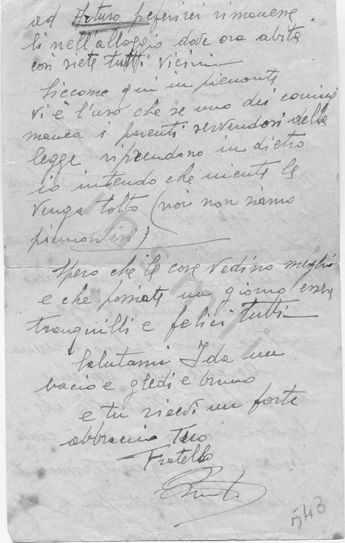 ad Arturo preferirei rimanesse
lì nell'alloggio dove ora abita
così siete tutti vicini
Siccome qui in piemonte
vi è l'uso che se uno dei coniugi
manca i parenti servendosi della
legge riprendono in dietro
io intendo che niente le
venga tolto (noi non siamo
piemontesi)
Spero che le cose vadino meglio
e che possiate un giorno essere
tranquilli e felici tutti
Salutami Ida un
bacio e gledi e bruno
e tu ricevi un forte
abbraccio Tuo
Fratello
543